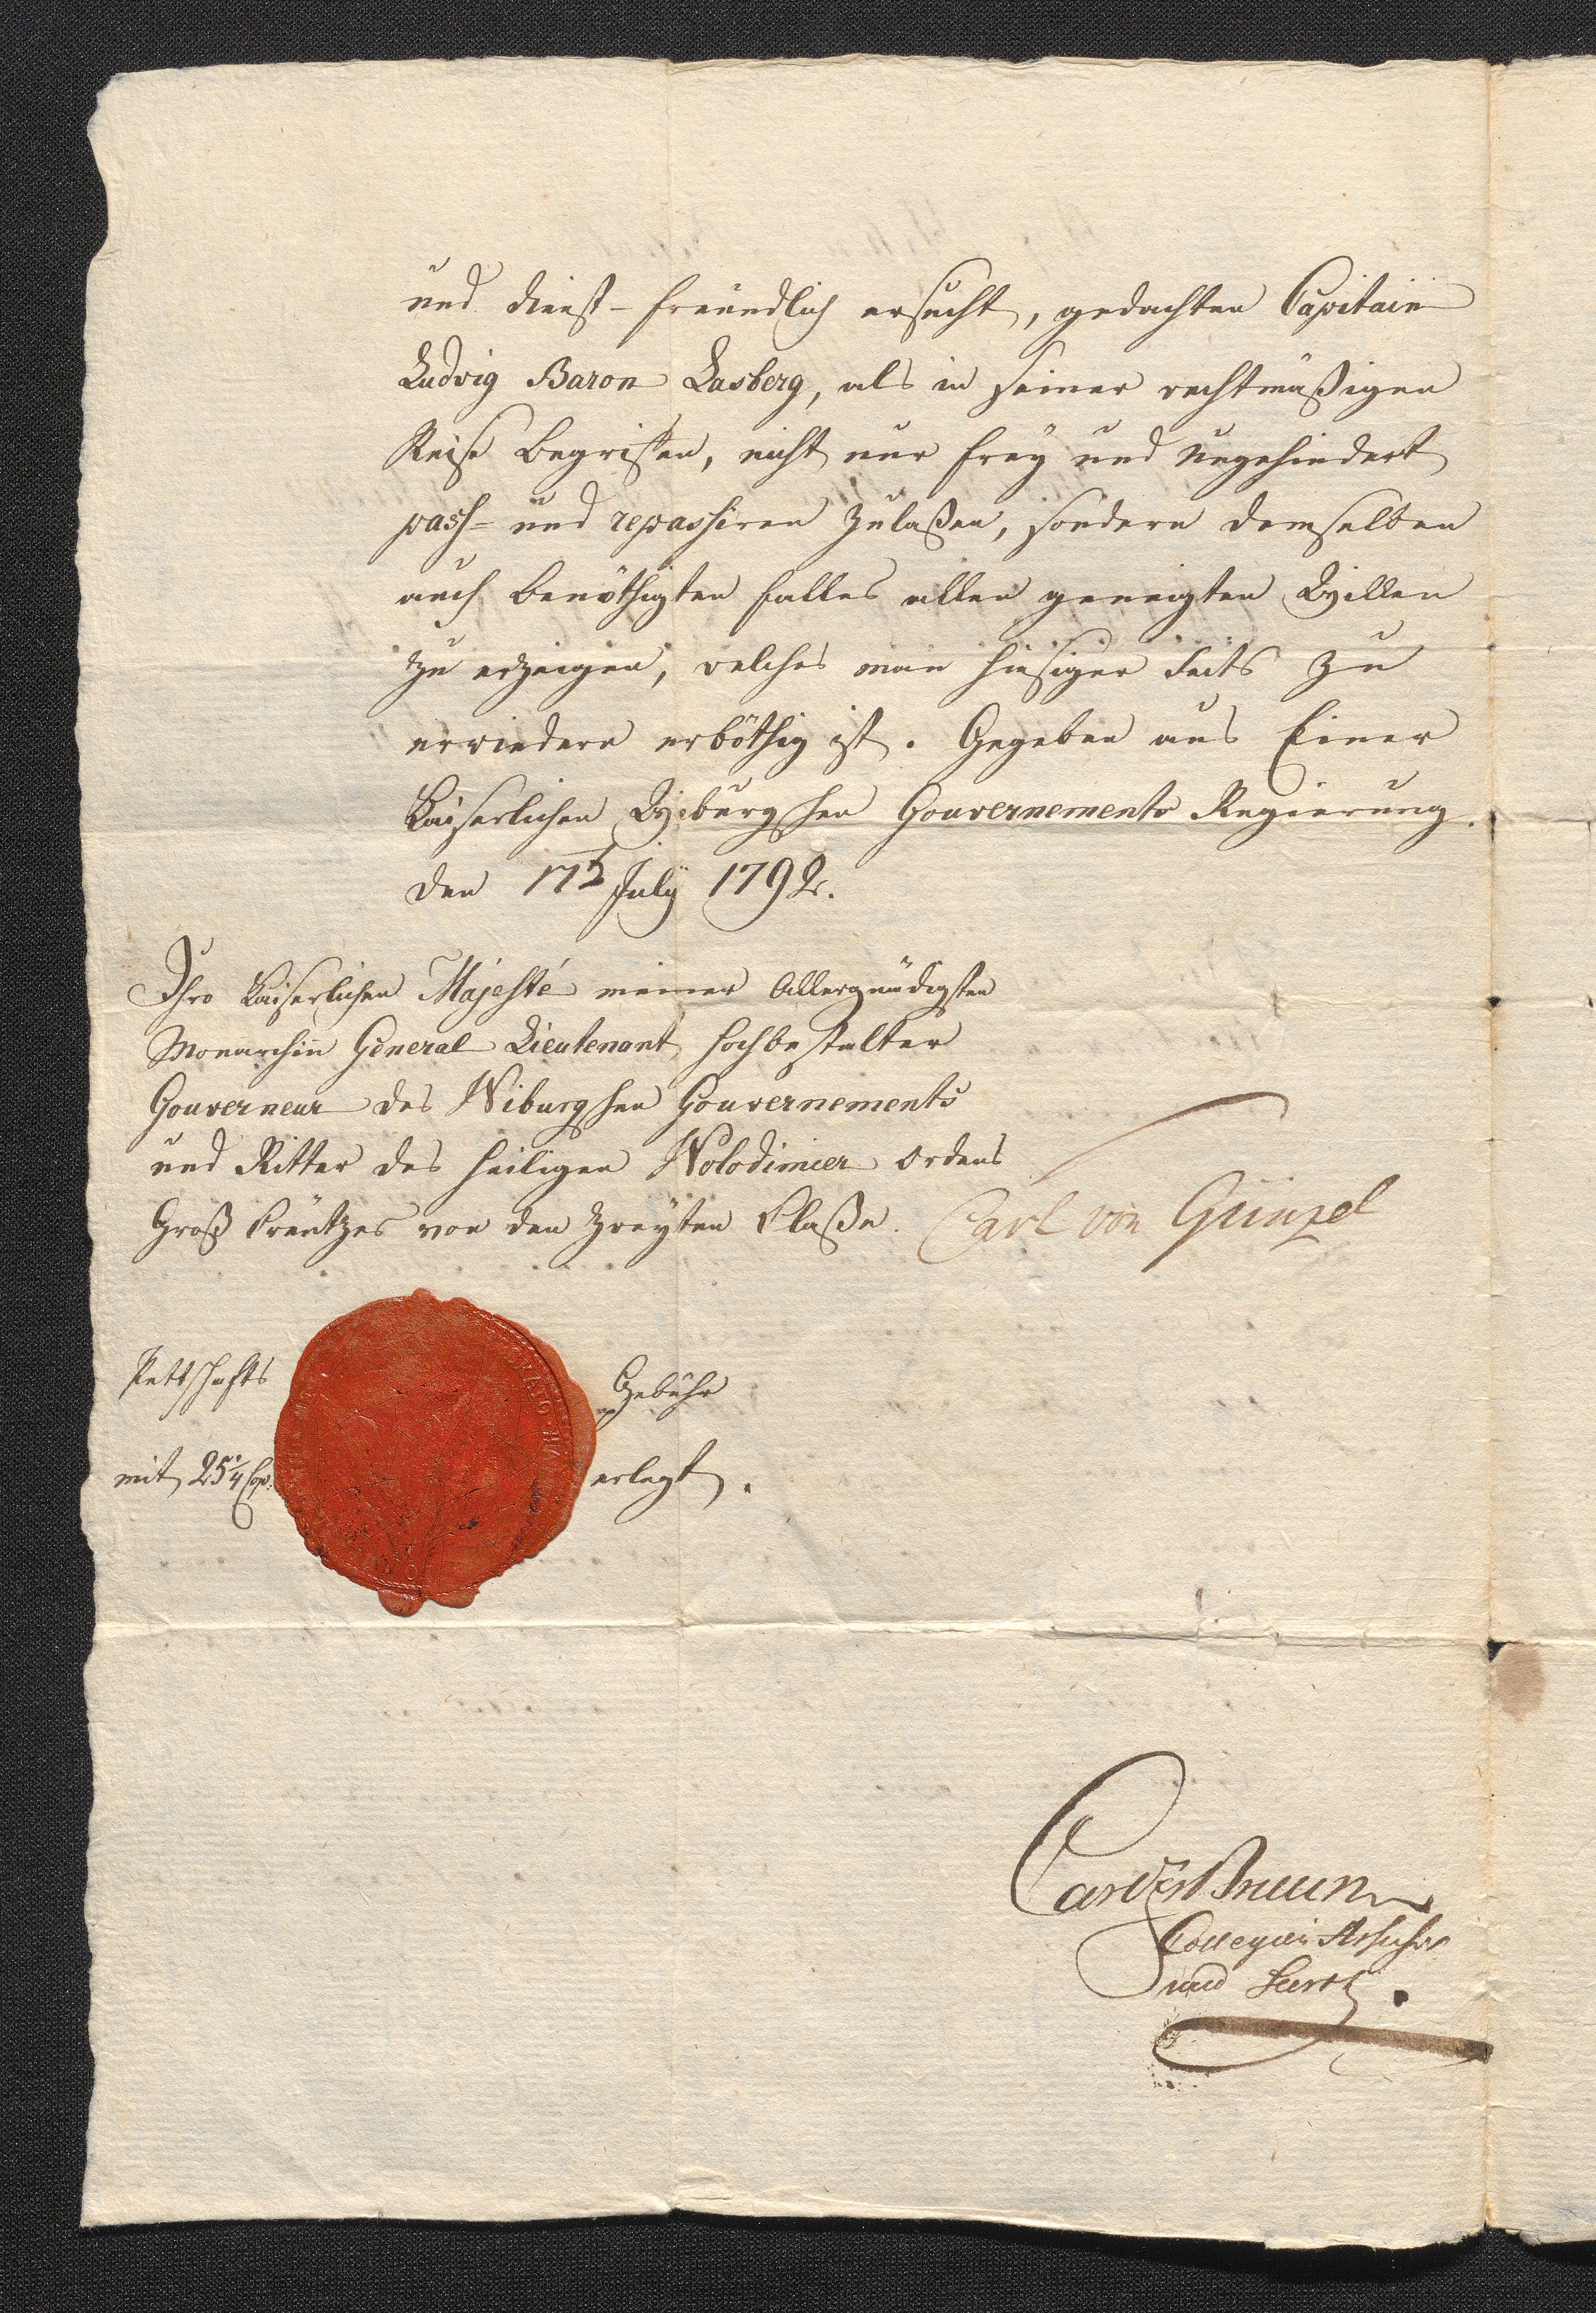 und dienst-freündlich ersucht, gedachten Capitain
Ludvig Baron Lasberg, als in seiner rechtmäßigen
Reise begriffen, nicht nur frey und ungehindert
pass- und repassiren zulaßen, sondern demselben
auch benöthigten falles allen geneigten Willen
zu erzeigen, welches man hiesiger seits zu
erwiedern erböthig ist. Gegeben aus Einer
Kaiserlichen Wiburgschen Gouvernements Regierung.
den July 1792.
Ihro Kaiserlichen Majesté meiner Allergnädigsten
Monarchin General Lieutenant, hochbestalter
Gouverneur des Wiburgschen Gouvernements
und Ritter des heiligen Wolodimier Ordens
Groß Kreützes von der zweyten Claße. Carl von Günzel
Pettschafts Gebühr
mit 25¼ Cop. erlegt.
Bruun
Collegien Assessor
und Secrt.